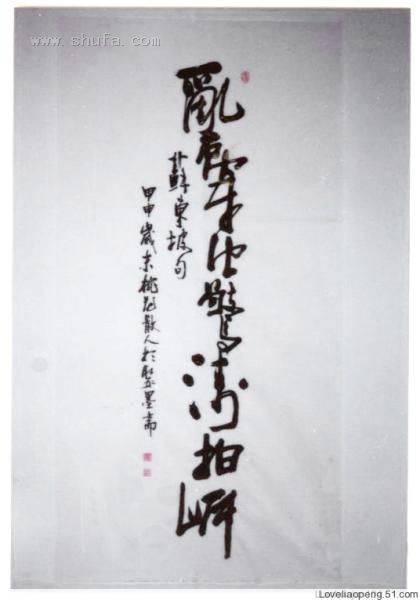 www.shufa.com
亂石穿空驚濤拍岸
蘇東坡句
甲申歲末散人於墨斋
Loveliaopeng.51.com